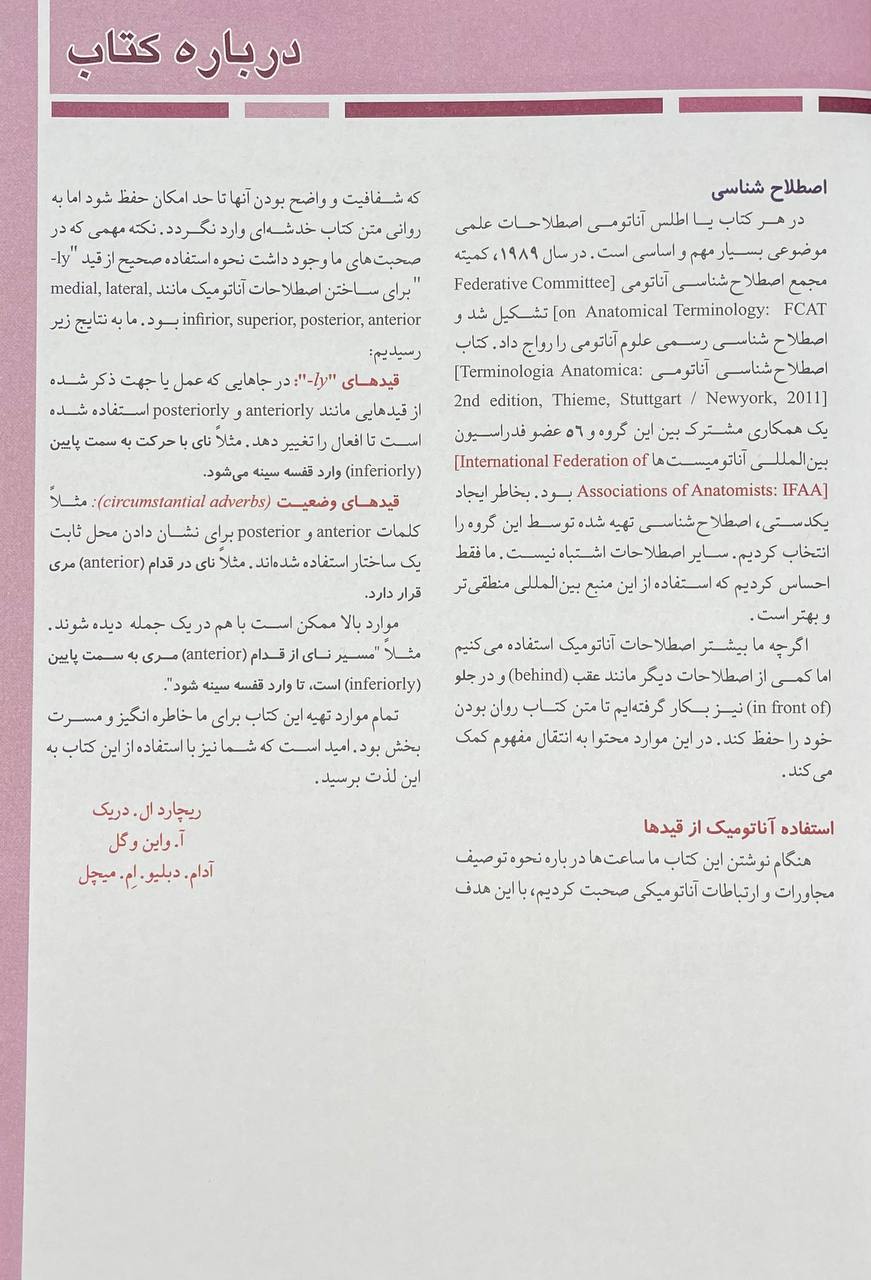 درباره کتاب
اصطلاح شناسی
در هر کتاب یا اطلس آناتومی اصطلاحات علمی
موضوعی بسیار مهم و اساسی است. در سال ۱۹۸۹، کمیته
مجمع اصطلاح شناسی آناتومی [Federative Committee
on Anatomical Terminology: FCAT] تشکیل شد و
اصطلاح شناسی رسمی علوم آناتومی را رواج داد. کتاب
اصطلاح شناسی آناتومی [Terminologia Anatomica:
2nd edition, Thieme, Stuttgart / Newyork, 2011]
یک همکاری مشترک بین این گروه و ۵۶ عضو فدراسیون
بین‌المللی آناتومیست‌ها [International Federation of
Associations of Anatomists: IFAA] بود. بخاطر ایجاد
یکدستی، اصطلاح شناسی تهیه شده توسط این گروه را
انتخاب کردیم. سایر اصطلاحات اشتباه نیست. ما فقط
احساس کردیم که استفاده از این منبع بین‌المللی منطقی‌تر
و بهتر است.
اگرچه ما بیشتر اصطلاحات آناتومیک استفاده می‌کنیم
اما کمی از اصطلاحات دیگر مانند عقب (behind) و در جلو
(in front of) نیز بکار گرفته‌ایم تا متن کتاب روان بودن
خود را حفظ کند. در این موارد محتوا به انتقال مفهوم کمک
می‌کند.
استفاده آناتومیک از قیدها
هنگام نوشتن این کتاب ما ساعت‌ها درباره نحوه توصیف
مجاورات و ارتباطات آناتومیکی صحبت کردیم، با این هدف
که شفافیت و واضح بودن آنها تا حد امکان حفظ شود اما به
روانی متن کتاب خدشه‌ای وارد نگردد. نکته مهمی که در
صحبت‌های ما وجود داشت نحوه استفاده صحیح از قید "ly-
" برای ساختن اصطلاحات آناتومیک مانند medial, lateral,
infirior, superior, posterior, anterior بود. ما به نتایج زیر
رسیدیم:
قیدهای "ly-": در جاهایی که عمل یا جهت ذکر شده
از قیدهایی مانند anteriorly و posteriorly استفاده شده
است تا افعال را تغییر دهد. مثلاً نای با حرکت به سمت پایین
(inferiorly) وارد قفسه سینه می‌شود.
قیدهای وضعیت (circumstantial adverbs): مثلاً
کلمات anterior و posterior برای نشان دادن محل ثابت
یک ساختار استفاده شده‌اند. مثلاً نای در قدام (anterior) مری
قرار دارد.
موارد بالا ممکن است با هم در یک جمله دیده شوند.
مثلاً "مسیر نای از قدام (anterior) مری به سمت پایین
(inferiorly) است، تا وارد قفسه سینه شود".
تمام موارد تهیه این کتاب برای ما خاطره انگیز و مسرت
بخش بود. امید است که شما نیز با استفاده از این کتاب به
این لذت برسید.
ریچارد ال. دریک
آ. واین وگل
آدام. دبلیو. اِم. میچل